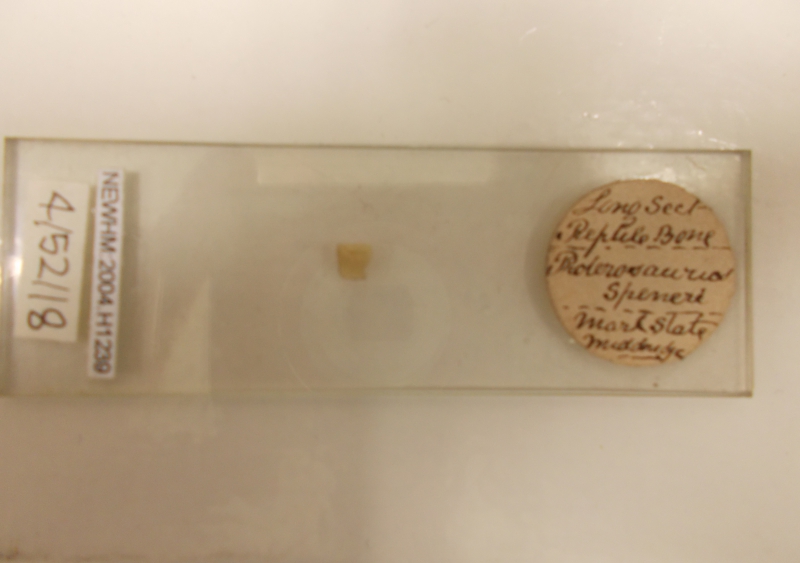 4/52/18
NEWHM:2004.H1239
Long Sect
Reptile Bone
Proterosaurus
Speneri
Marl Slate
Middridge